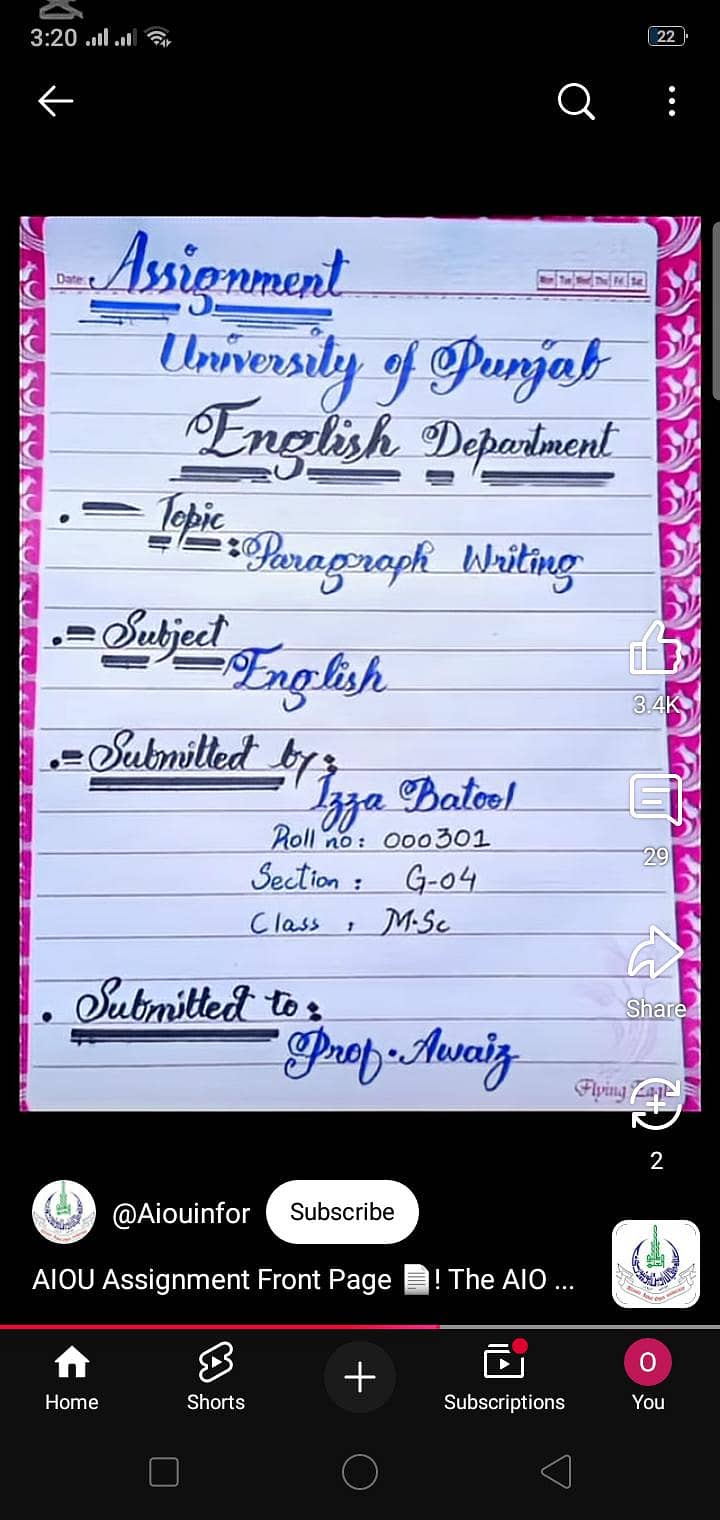 3:20
22
Date:
Assignment
Mon Tue Wed Thu Fri Sat
University of Punjab
English Department
Topic
:Paragraph Writing
Subject
English
3.4K
Submitted by:
Izza Batool
Roll no: 000301
29
Section : G-04
Class : M.Sc
Submitted to:
Share
Prof. Awaiz
Flying
2
@Aiouinfor
Subscribe
AIOU Assignment Front Page 📄! The AIO ...
Home
Shorts
Subscriptions
O
You